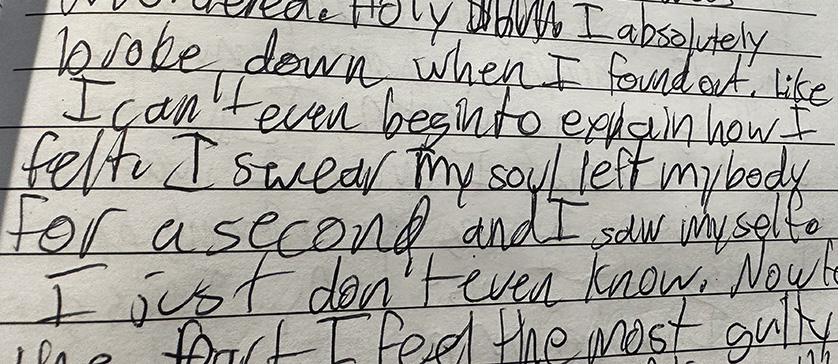 Holy I absolutely
broke down when I found out. Like
I can't even begin to explain how I
felt. I swear my soul left my body
for a second and I saw myself.
I just don't even know. Now
the part I feel the most guilty